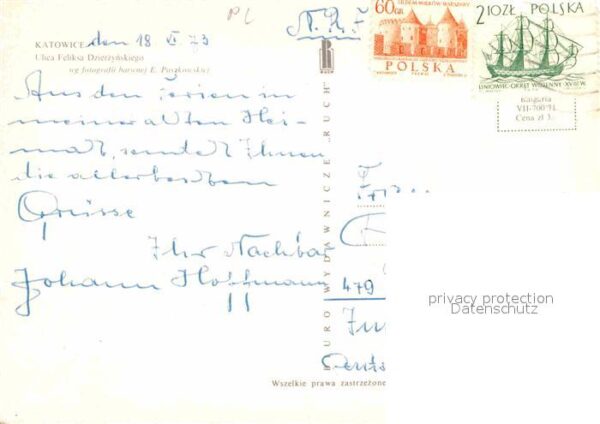 PL
N.R.F
KATOWICE den 18 VI 73
Ulica Feliksa Dzierżyńskiego
wg fotografii barwnej E. Paszkowskiej
Aus den Ferien in
meiner alten Hei-
mat, sendet Ihnen
die allerbesten
Grüsse
Ihr Nachbar
Johann Hoffmann
BIURO WYDAWNICZE „RUCH"
Wszelkie prawa zastrzeżone
60GR
POLSKA
2,10ZŁ POLSKA
LINIOWIEC-OKRĘT WOJENNY XVIII W.
Księgarnia
VII-700/71
Cena zł 3.
479
privacy protection
Datenschutz